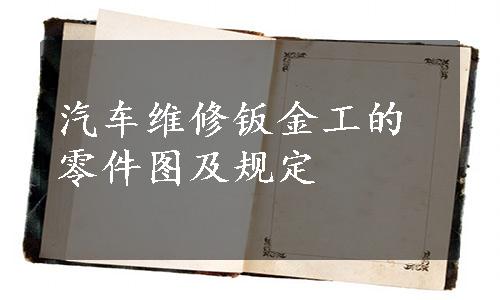 汽车维修钣金工的
零件图及规定